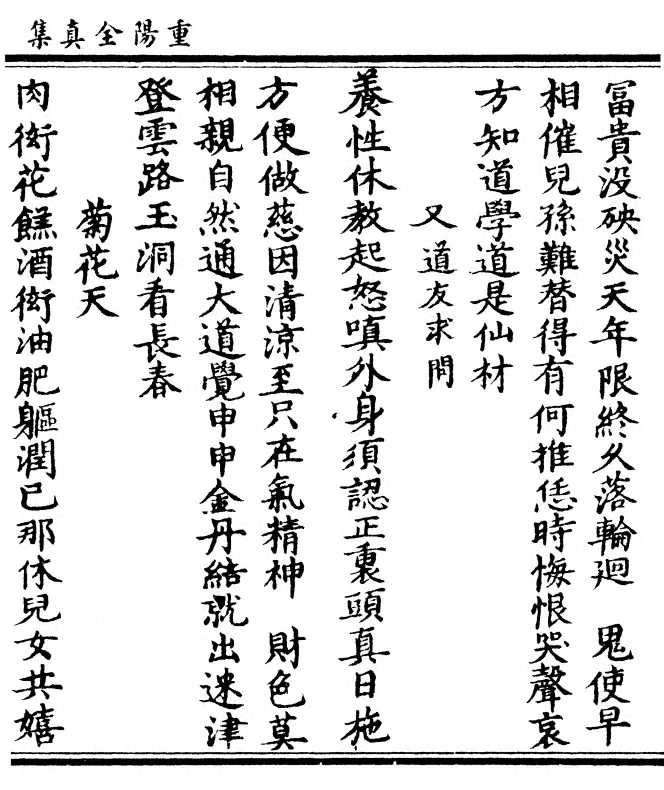 重陽全真集
冨貴没殃災天年限終久落輪廻　鬼使早
相催兒孫難替得有何推恁時悔恨哭聲哀
方知道學道是仙材
又道友求問
養性休教起怒嗔外身須認正裏頭真日施
方便做慈因清凉至只在氣精神　財色莫
相親自然通大道覺申申金丹結就出迷津
登雲路玉洞看長春
菊花天
肉衒花餻酒衒油肥軀潤已那休兒女共嬉